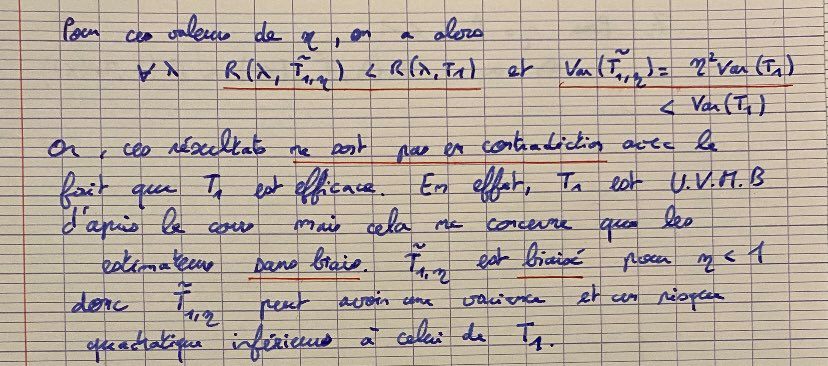 Pour ces valeurs de η, on a alors
∀ λ R(λ, T̃₁,η) < R(λ, T₁) et Var(T̃₁,η) = η² Var(T₁)
< Var(T₁)
Or, ces résultats ne sont pas en contradiction avec le
fait que T₁ est efficace. En effet, T₁ est U.V.M.B
d'après le cours mais cela ne concerne que les
estimateurs sans biais. T̃₁,η est biaisé pour η < 1
donc T̃₁,η peut avoir une variance et un risque
quadratique inférieurs à celui de T₁.